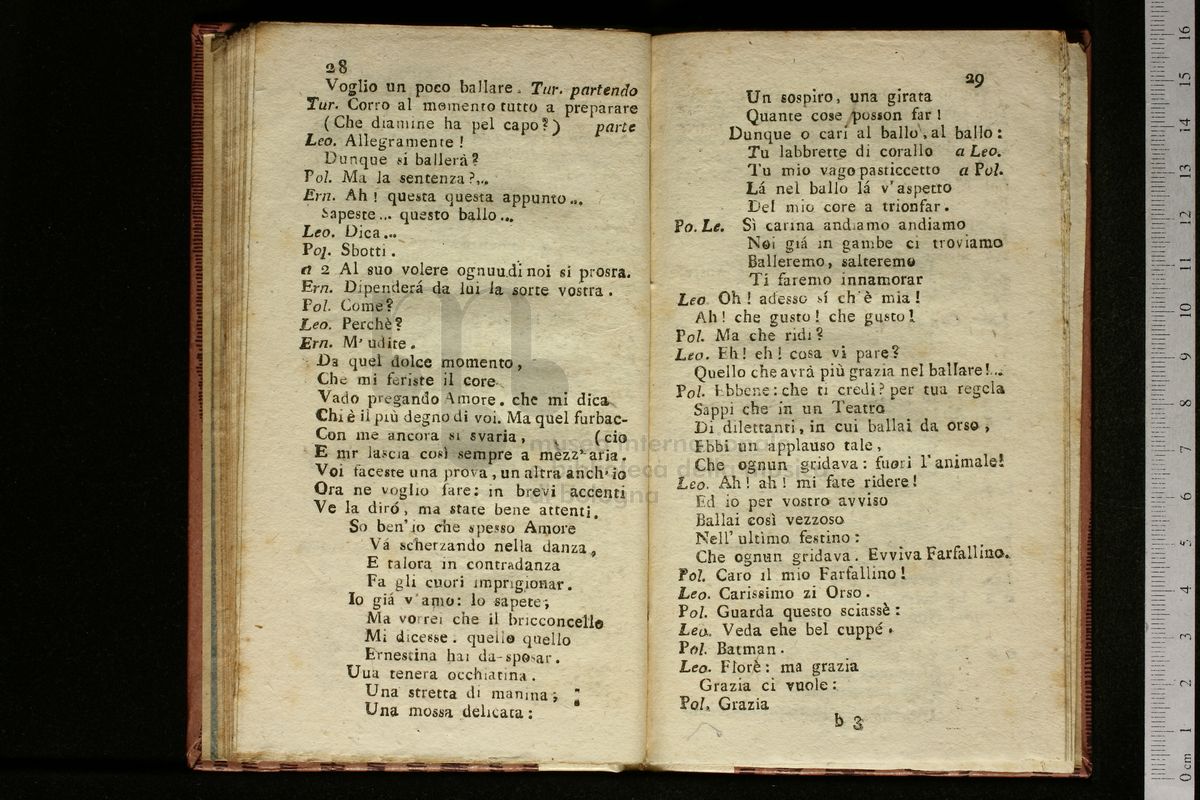 28
Voglio un poco ballare. Tur. partendo
Tur. Corro al momento tutto a preparare
(Che diamine ha pel capo?) parte
Leo. Allegramente!
Dunque si ballerà?
Pol. Ma la sentenza?...
Ern. Ah! questa questa appunto...
Sapeste... questo ballo...
Leo. Dica...
Pol. Sbotti.
a 2 Al suo volere ognuu di noi si prosra.
Ern. Dipenderá da lui la sorte vostra.
Pol. Come?
Leo. Perchè?
Ern. M' udite.
Da quel dolce momento,
Che mi feriste il core
Vado pregando Amore. che mi dica
Chi è il più degno di voi. Ma quel furbac-
Con me ancora si svaria, (cio
E mr lascia così sempre a mezz' aria.
Voi faceste una prova, un altra anch' io
Ora ne voglio fare: in brevi accenti
Ve la diró, ma state bene attenti.
So ben' io che spesso Amore
Vá scherzando nella danza,
E talora in contradanza
Fa gli cuori imprigionar.
Io giá v'amo: lo sapete;
Ma vorrei che il bricconcello
Mi dicesse. quello quello
Ernestina hai da-sposar.
Uua tenera occhiatina.
Una stretta di manina;
Una mossa delicata:
29
Un sospiro, una girata
Quante cose posson far!
Dunque o cari al ballo, al ballo:
Tu labbrette di corallo a Leo.
Tu mio vago pasticcetto a Pol.
Lá nel ballo lá v'aspetto
Del mio core a trionfar.
Po. Le. Sì carina andiamo andiamo
Noi giá in gambe ci troviamo
Balleremo, salteremo
Ti faremo innamorar
Leo Oh! adesso sí ch'è mia!
Ah! che gusto! che gusto!
Pol. Ma che ridi?
Leo. Eh! eh! cosa vi pare?
Quello che avrà più grazia nel ballare!...
Pol. Ebbene: che ti credi? per tua regola
Sappi che in un Teatro
Di dilettanti, in cui ballai da orso,
Ebbi un applauso tale,
Che ognun gridava: fuori l'animale!
Leo. Ah! ah! mi fate ridere!
Ed io per vostro avviso
Ballai così vezzoso
Nell' ultimo festino:
Che ognun gridava. Evviva Farfallino.
Pol. Caro il mio Farfallino!
Leo. Carissimo zi Orso.
Pol. Guarda questo sciassè:
Leo. Veda ehe bel cuppé.
Pol. Batman.
Leo. Florè: ma grazia
Grazia ci vuole:
Pol. Grazia
b 3
museo internazionale
e biblioteca della musica
di bologna
0 cm 1 2 3 4 5 6 7 8 9 10 11 12 13 14 15 16